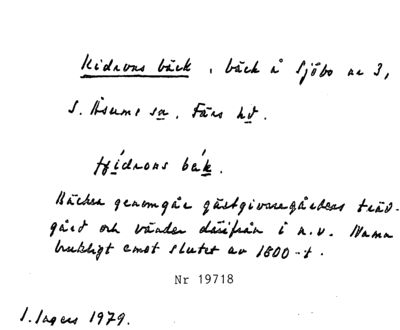 Kidrons bäck, bäck å Sjöbo nr 3,
S. Åsums sn, Färs hd.
tjídrons bák.
Bäcken genomgår gästgivaregårdens träd-
gård och vänder därifrån i n.v. Namn
brukligt emot slutet av 1800-t.
Nr 19718
I. Ingers 1979.